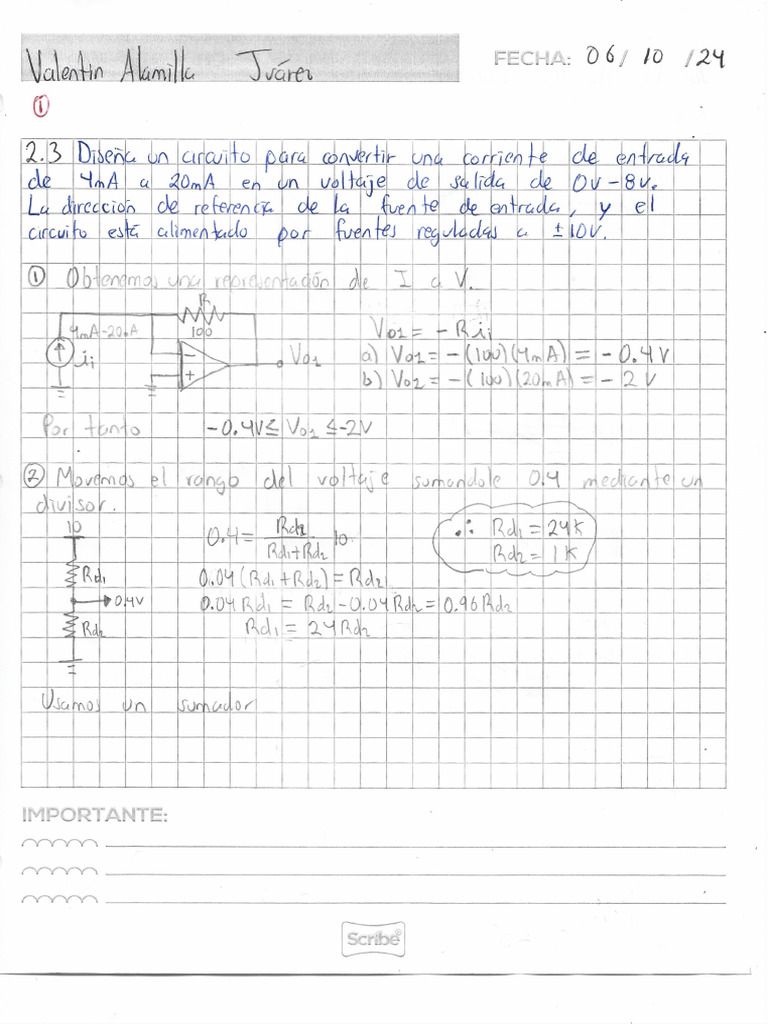 Valentin Alamilla Juárez
FECHA: 06/ 10 /24
①
2.3 Diseña un circuito para convertir una corriente de entrada
de 4mA a 20mA en un voltaje de salida de 0v-8v.
La dirección de referencia de la fuente de entrada, y el
circuito está alimentado por fuentes reguladas a ±10V.
① Obtenemos una representación de I a V.
R
100
4mA-20mA
ii
Vo1
Vo1 = -Rii
a) Vo1 = -(100)(4mA) = -0.4V
b) Vo2 = -(100)(20mA) = -2V
Por tanto -0.4V≤ Vo1 ≤-2V
② Movemos el rango del voltaje sumandole 0.4 mediante un
divisor.
10
Rd1
0.4V
Rd2
0.4 = Rd2 / Rd1+Rd2 10
0.04(Rd1+Rd2) = Rd2
0.04Rd1 = Rd2-0.04Rd2 = 0.96Rd2
Rd1 = 24Rd2
∴ Rd1 = 24K
Rd2 = 1K
Usamos un sumador
IMPORTANTE:
Scribe®